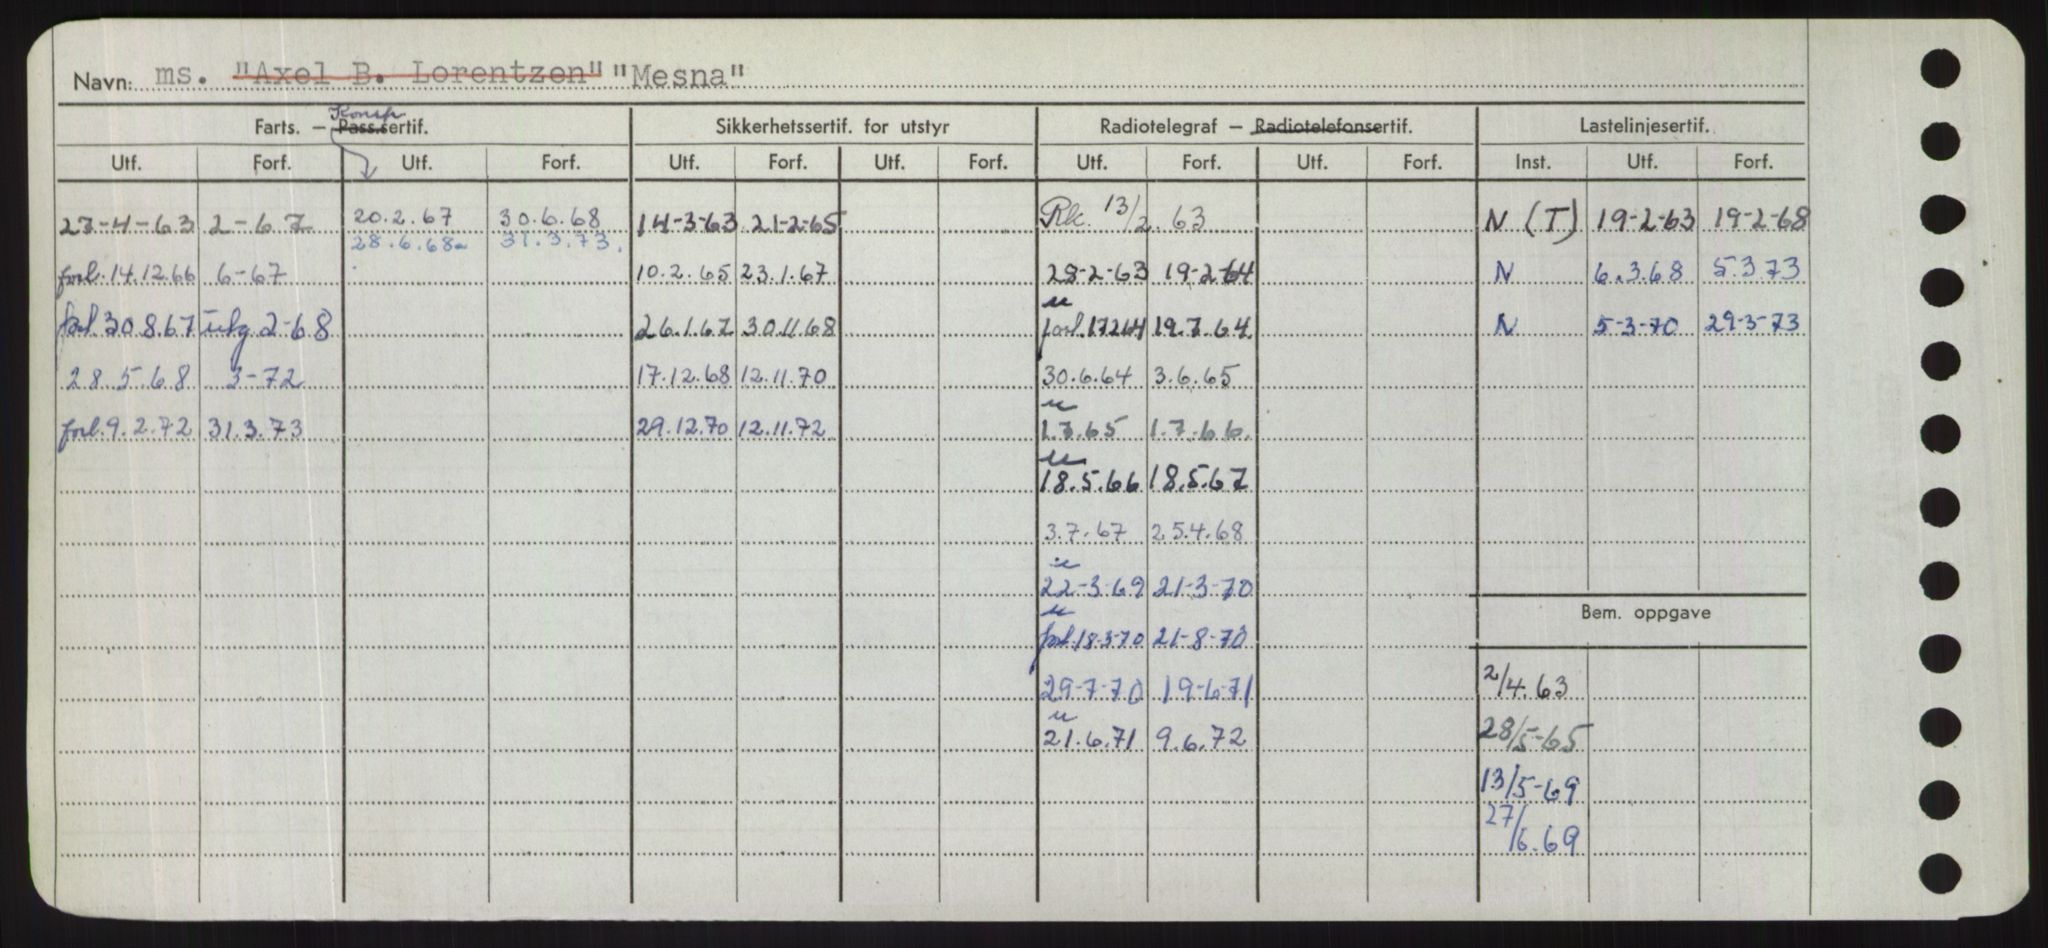 Navn: ms. "Axel B. Lorentzen" "Mesna"
Konstr.
Farts. — Pass.sertif. Sikkerhetssertif. for utstyr Radiotelegraf — Radiotelefonsertif. Lastelinjesertif.
Utf. Forf. Utf. Forf. Utf. Forf. Utf. Forf. Utf. Forf. Utf. Forf. Inst. Utf. Forf.
27-4-63 2-67 20.2.67 30.6.68 14-3-63 21-2-65 Rk. 13/2.63 N (T) 19-2-63 19-2-68
28.6.68 31.3.73.
forl. 14.12.66 6-67 10.2.65 23.1.67 28-2-63 19-2-64 N 6.3.68 5.3.73
u
forl. 30.8.67 utg 2-68 26.1.67 30.11.68 forl. 17264 19.7.64 N 5-3-70 29-3-73
28.5.68 3-72 17.12.68 12.11.70 30.6.64 3.6.65
u
forl. 9.2.72 31.3.73 29.12.70 12.11.72 1.7.65 1.7.66.
u
18.5.66 18.5.67
3.7.67 25.4.68
u
22-3-69 21-3-70
Bem. oppgave
u
forl. 18-3-70 21-8-70
29-7-70 19-6-71 2/4.63
u
21.6.71 9.6.72 28/5-65
13/5-69
27/6.69